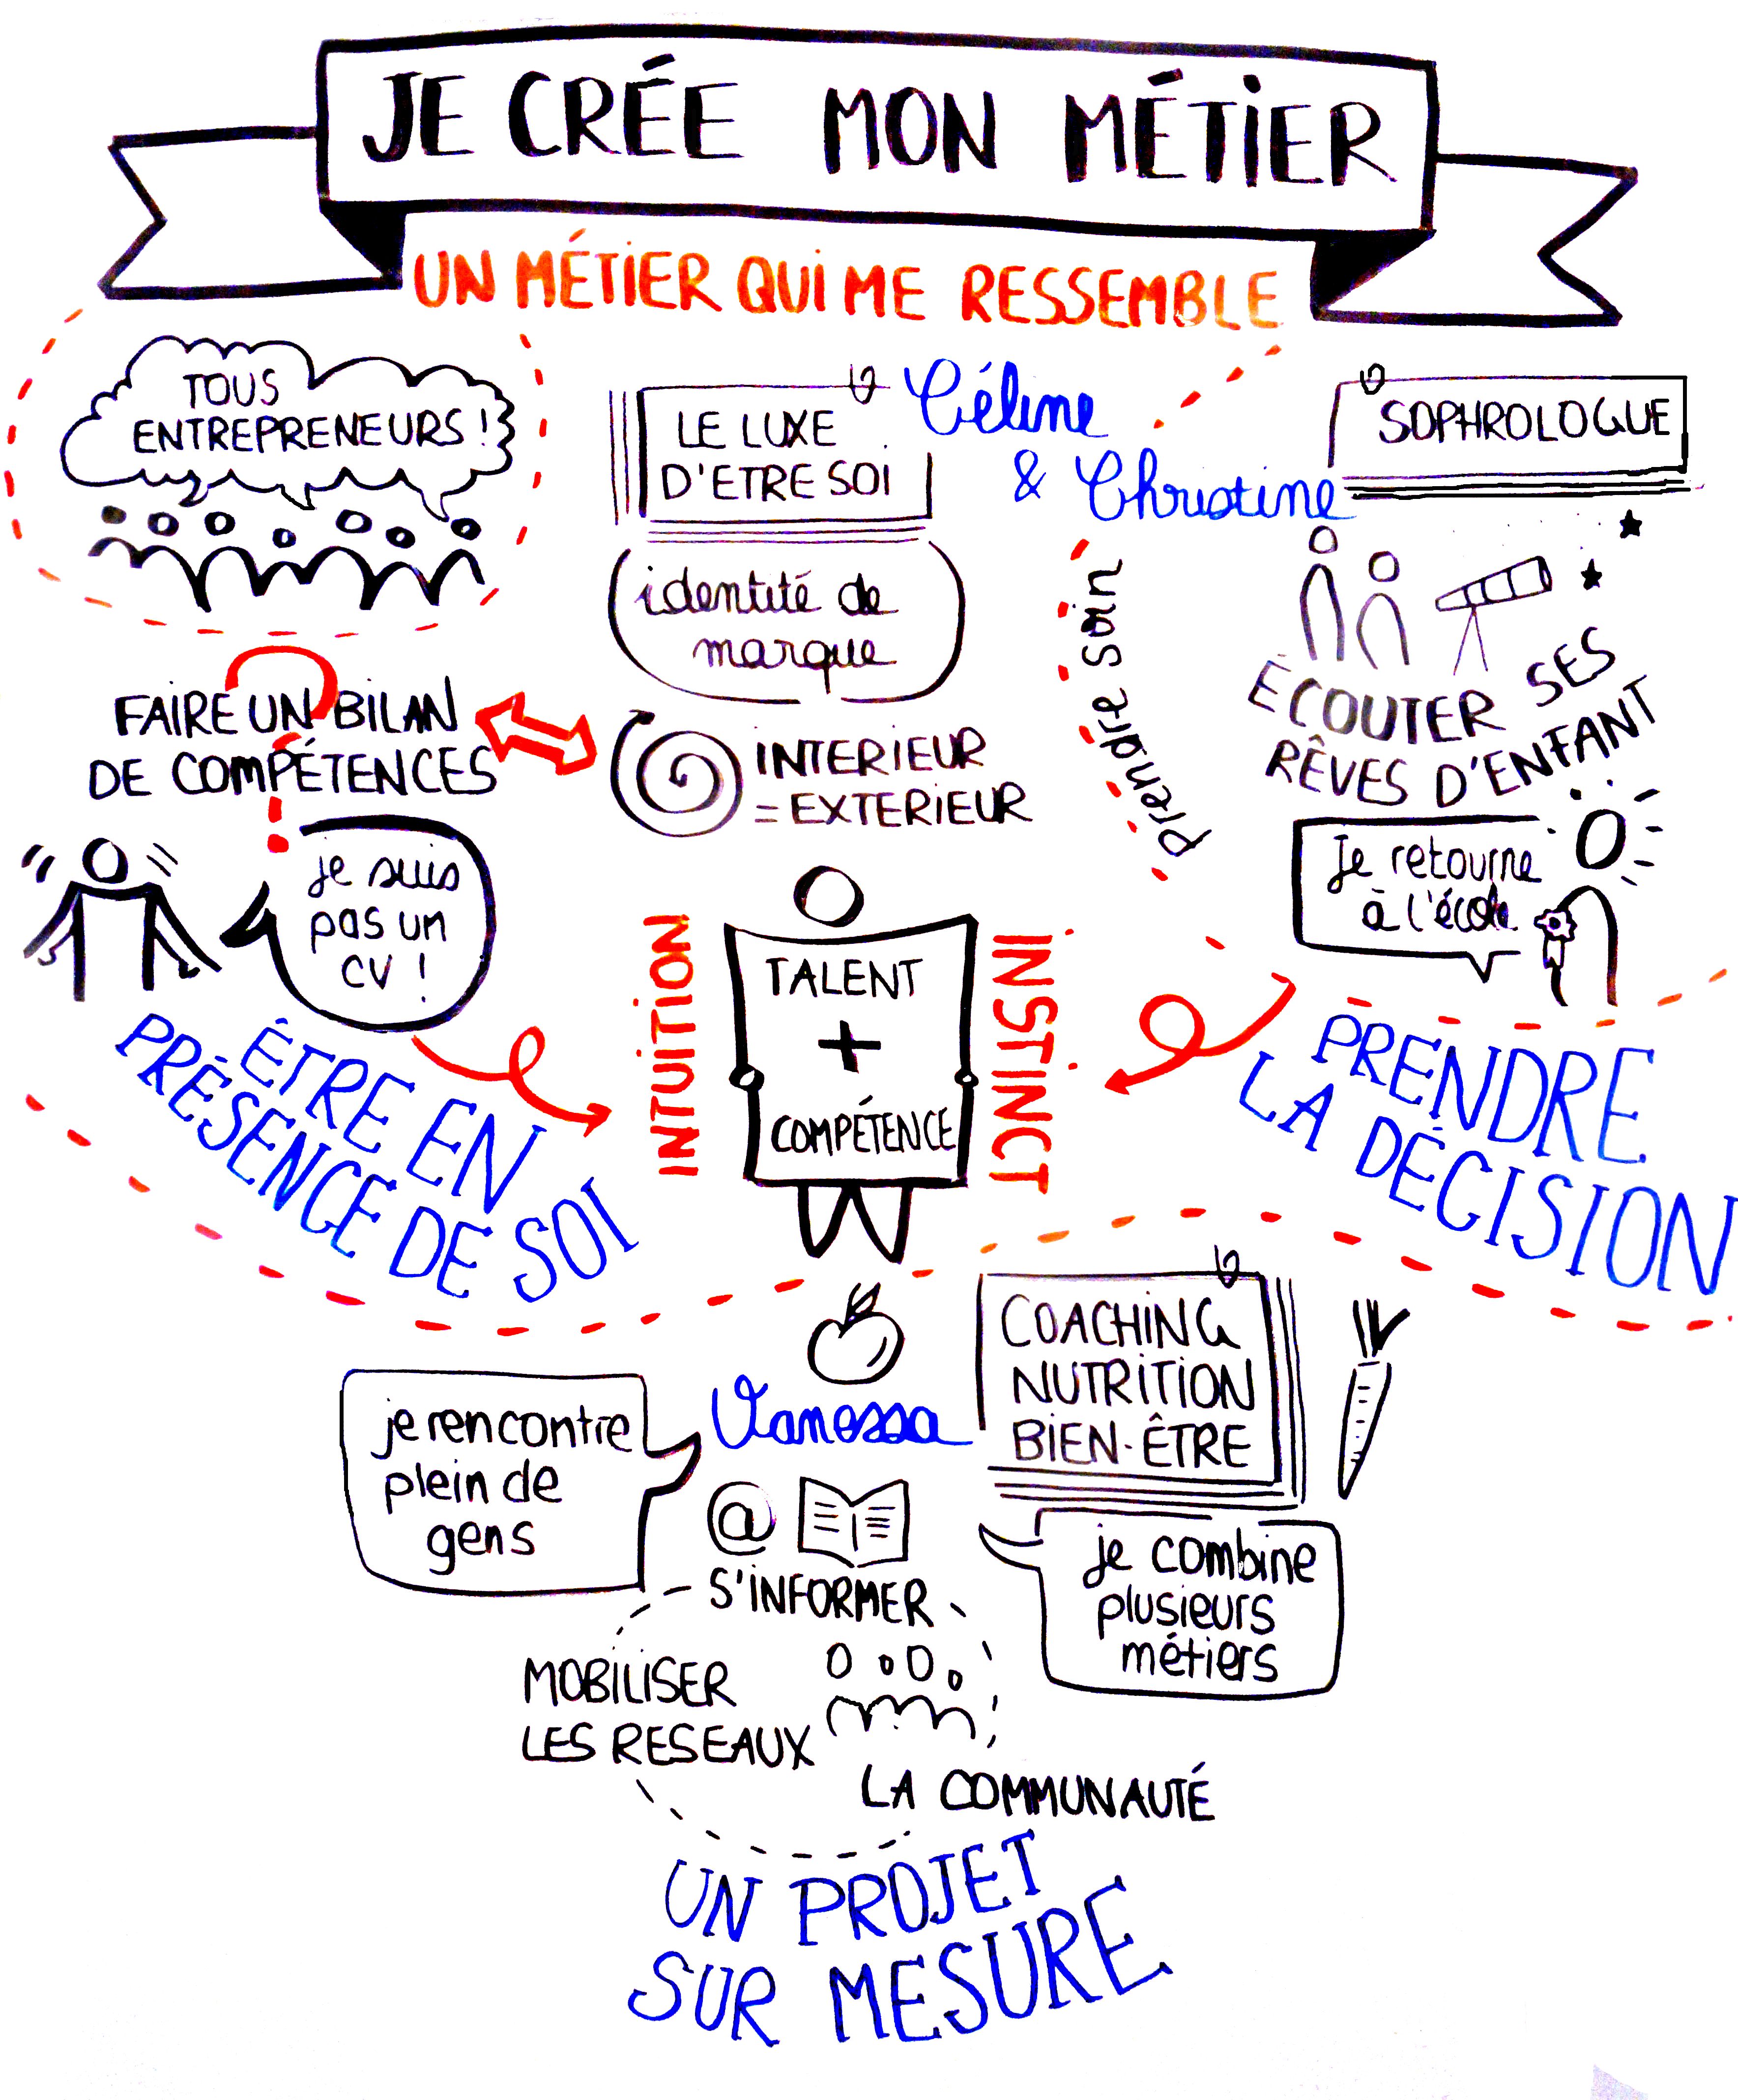 JE CRÉE MON MÉTIER
UN MÉTIER QUI ME RESSEMBLE
TOUS
ENTREPRENEURS !
LE LUXE
D'ETRE SOI
Céline
& Christine
SOPHROLOGUE
identité de
marque
prendre soin
ÉCOUTER SES
RÊVES D'ENFANT
FAIRE UN BILAN
DE COMPÉTENCES
?
INTERIEUR
= EXTERIEUR
je suis
pas un
CV !
Je retourne
à l'école
INTUITION
TALENT
+
COMPÉTENCE
INSTINCT
ÊTRE EN
PRÉSENCE DE SOI
PRENDRE
LA DÉCISION
je rencontre
plein de
gens
Vanessa
COACHING
NUTRITION
BIEN-ÊTRE
@
S'INFORMER
je combine
plusieurs
métiers
MOBILISER
LES RESEAUX
LA COMMUNAUTÉ
UN PROJET
SUR MESURE